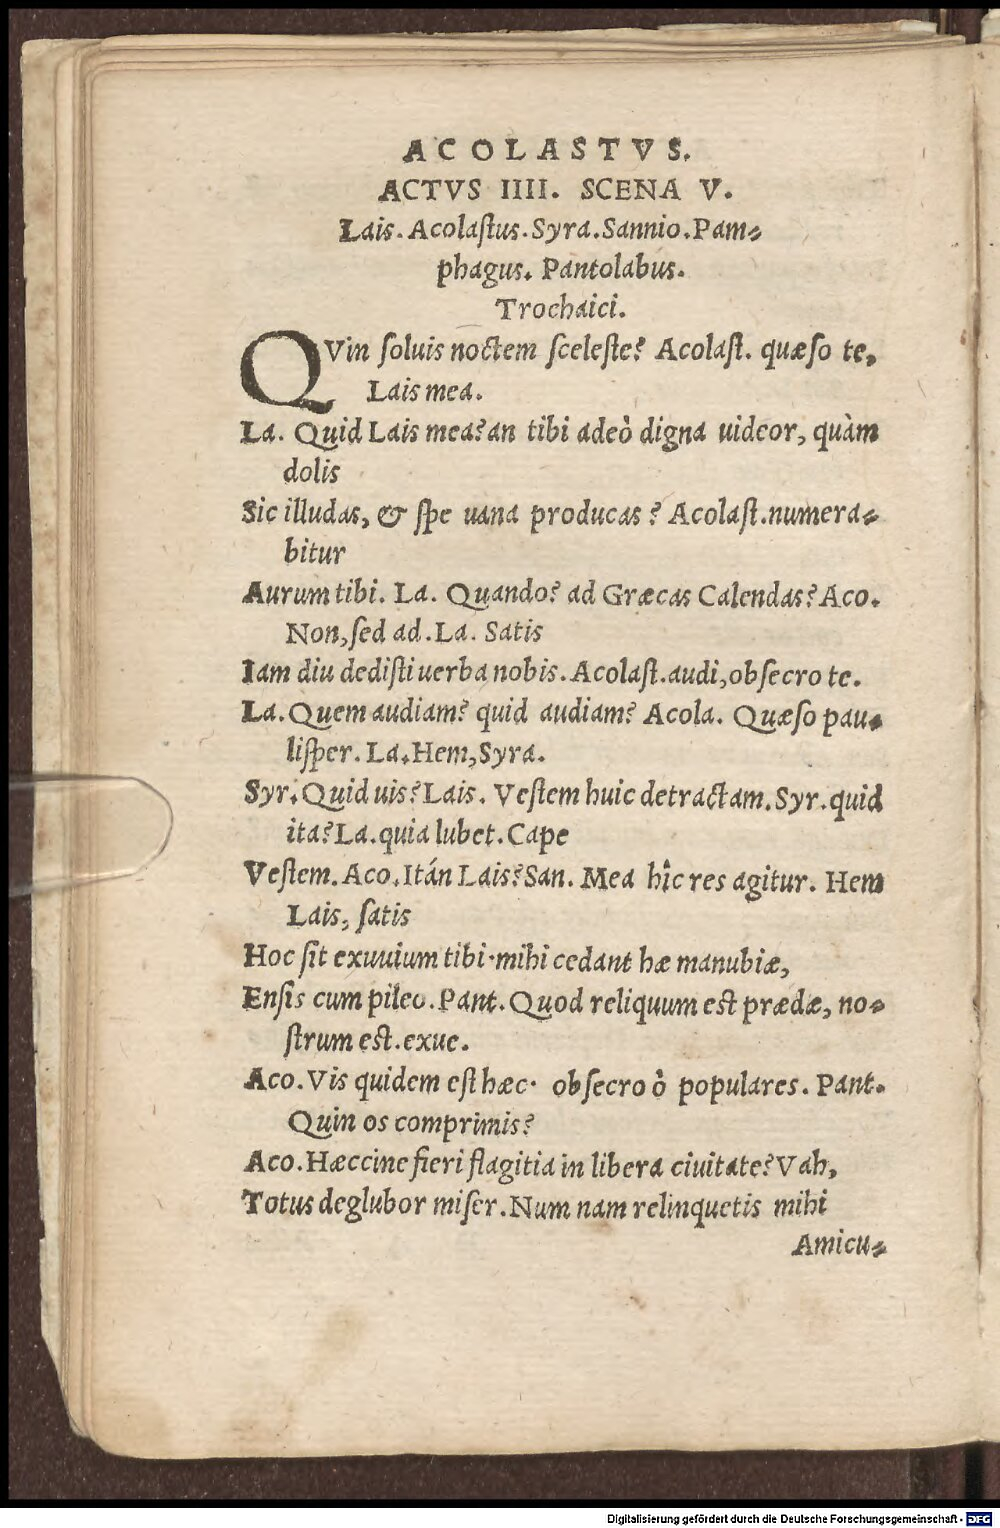 ACOLASTVS.
ACTVS IIII. SCENA V.
Lais. Acolaſtus. Syra. Sannio. Pam-
phagus. Pantolabus.
Trochaici.
QVin ſoluis noctem ſceleſte? Acolaſt. quæſo te,
Lais mea.
La. Quid Lais mea? an tibi adeò digna uideor, quàm
dolis
Sic illudas, & ſpe uana producas? Acolaſt. numera-
bitur
Aurum tibi. La. Quando? ad Græcas Calendas? Aco.
Non, ſed ad. La. Satis
Iam diu dediſti uerba nobis. Acolaſt. audi, obſecro te.
La. Quem audiam? quid audiam? Acola. Quæſo pau-
liſper. La. Hem, Syra.
Syr. Quid uis? Lais. Veſtem huic detractam. Syr. quid
ita? La. quia lubet. Cape
Veſtem. Aco. Itán Lais? San. Mea hîc res agitur. Hem
Lais, ſatis
Hoc ſit exuuium tibi· mihi cedant hæ manubiæ,
Enſis cum pileo. Pant. Quod reliquum eſt prædæ, no-
ſtrum eſt. exue.
Aco. Vis quidem eſt hæc· obſecro ô populares. Pant.
Quin os comprimis?
Aco. Hæccine fieri flagitia in libera ciuitate? Vah,
Totus deglubor miſer. Num nam relinquetis mihi
Amicu-
Digitalisierung gefördert durch die Deutsche Forschungsgemeinschaft - DFG